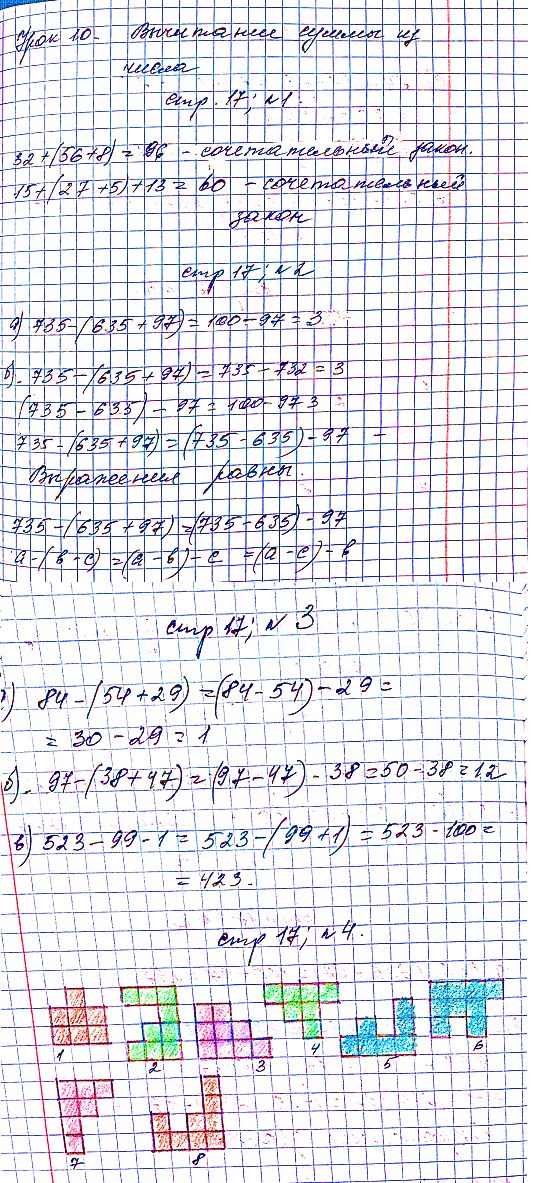 Урок 10. Вычитание суммы из
числа
стр. 17; №1.
32+(56+8) = 96 - сочетательный закон.
15+(27+5)+13 = 60 - сочетательный
закон
стр 17; №2
а) 735-(635+97) = 100-97 = 3
б). 735-(635+97) = 735-732 = 3
(735-635)-97 = 100-97 3
735-(635+97) = (735-635)-97 -
Выражения равны.
735-(635+97) = (735-635)-97
а-(в-с) = (а-в)-с = (а-с)-в
стр 17; №3
84-(54+29) = (84-54)-29 =
= 30-29 = 1
б). 97-(38+47) = (97-47)-38 = 50-38 = 12
в) 523-99-1 = 523-(99+1) = 523-100 =
= 423.
стр 17; №4.
1 2 3 4 5 6
7 8